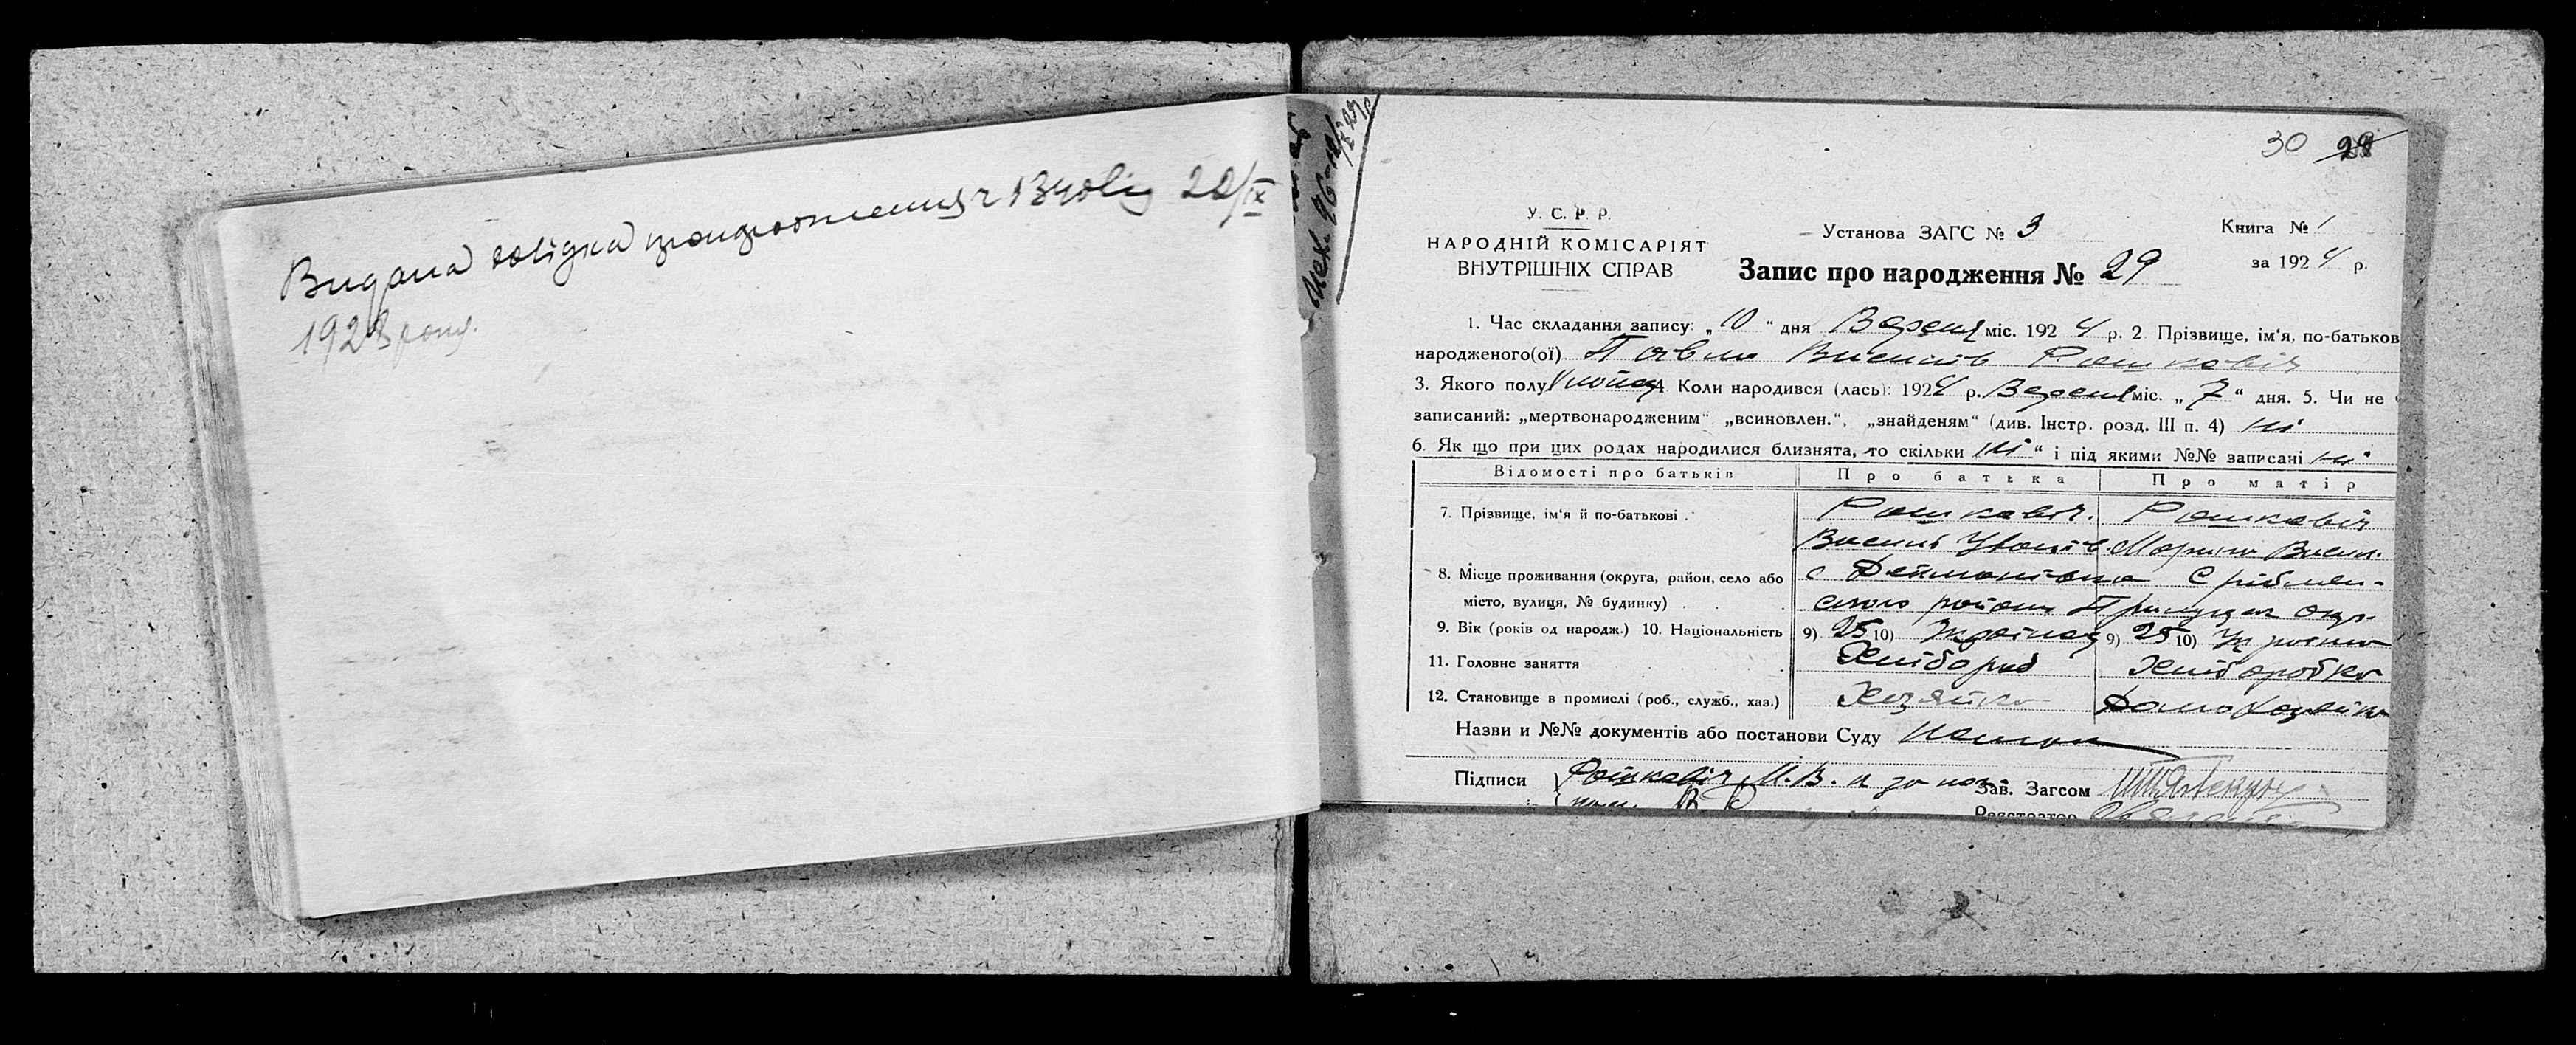 Видана довідка про народження в Вуовіц 22/ІХ
1928 року.
30 29
У. С. Р. Р.
НАРОДНІЙ КОМІСАРІЯТ
ВНУТРІШНІХ СПРАВ
Установа ЗАГС № 3
Книга № 1
за 1924 р.
Запис про народження № 29
1. Час складання запису: „10“ дня Вересня міс. 1924 р. 2. Прізвище, ім'я, по-батьков
народженого(ої) Павло Васил‍ів Рашкавіч
3. Якого полу 4. Коли народився (лась): 1924 р. Вересня міс. „7“ дня. 5. Чи не
записаний: „мертвонародженим“ „всиновлен.“, „знайденям“ (див. Інстр. розд. III п. 4) ні
6. Як що при цих родах народилися близнята, то скільки ні“ і під якими №№ записані ні
Відомості про батьків Про батька Про матір
7. Прізвище, ім'я й по-батькові Рашкавіч. Рашкавіч
Василь Іванів Марина Васил.
8. Місце проживання (округа, район, село або с Дейманівка Срібнян-
місто, вулиця, № будинку) ского району Прилуцькя окр.
9. Вік (років од народж.) 10. Національність 9) 25 10) Українец 9) 25 10) Українка
11. Головне заняття Хлібороб Хліборобка
12. Становище в промислі (роб., служб., хаз.) Хозяйка Домохозяйка
Назви и №№ документів або постанови Суду Немаи
Підписи Рашкавіч М. В. а за Зав. Загсом
Реєстратор